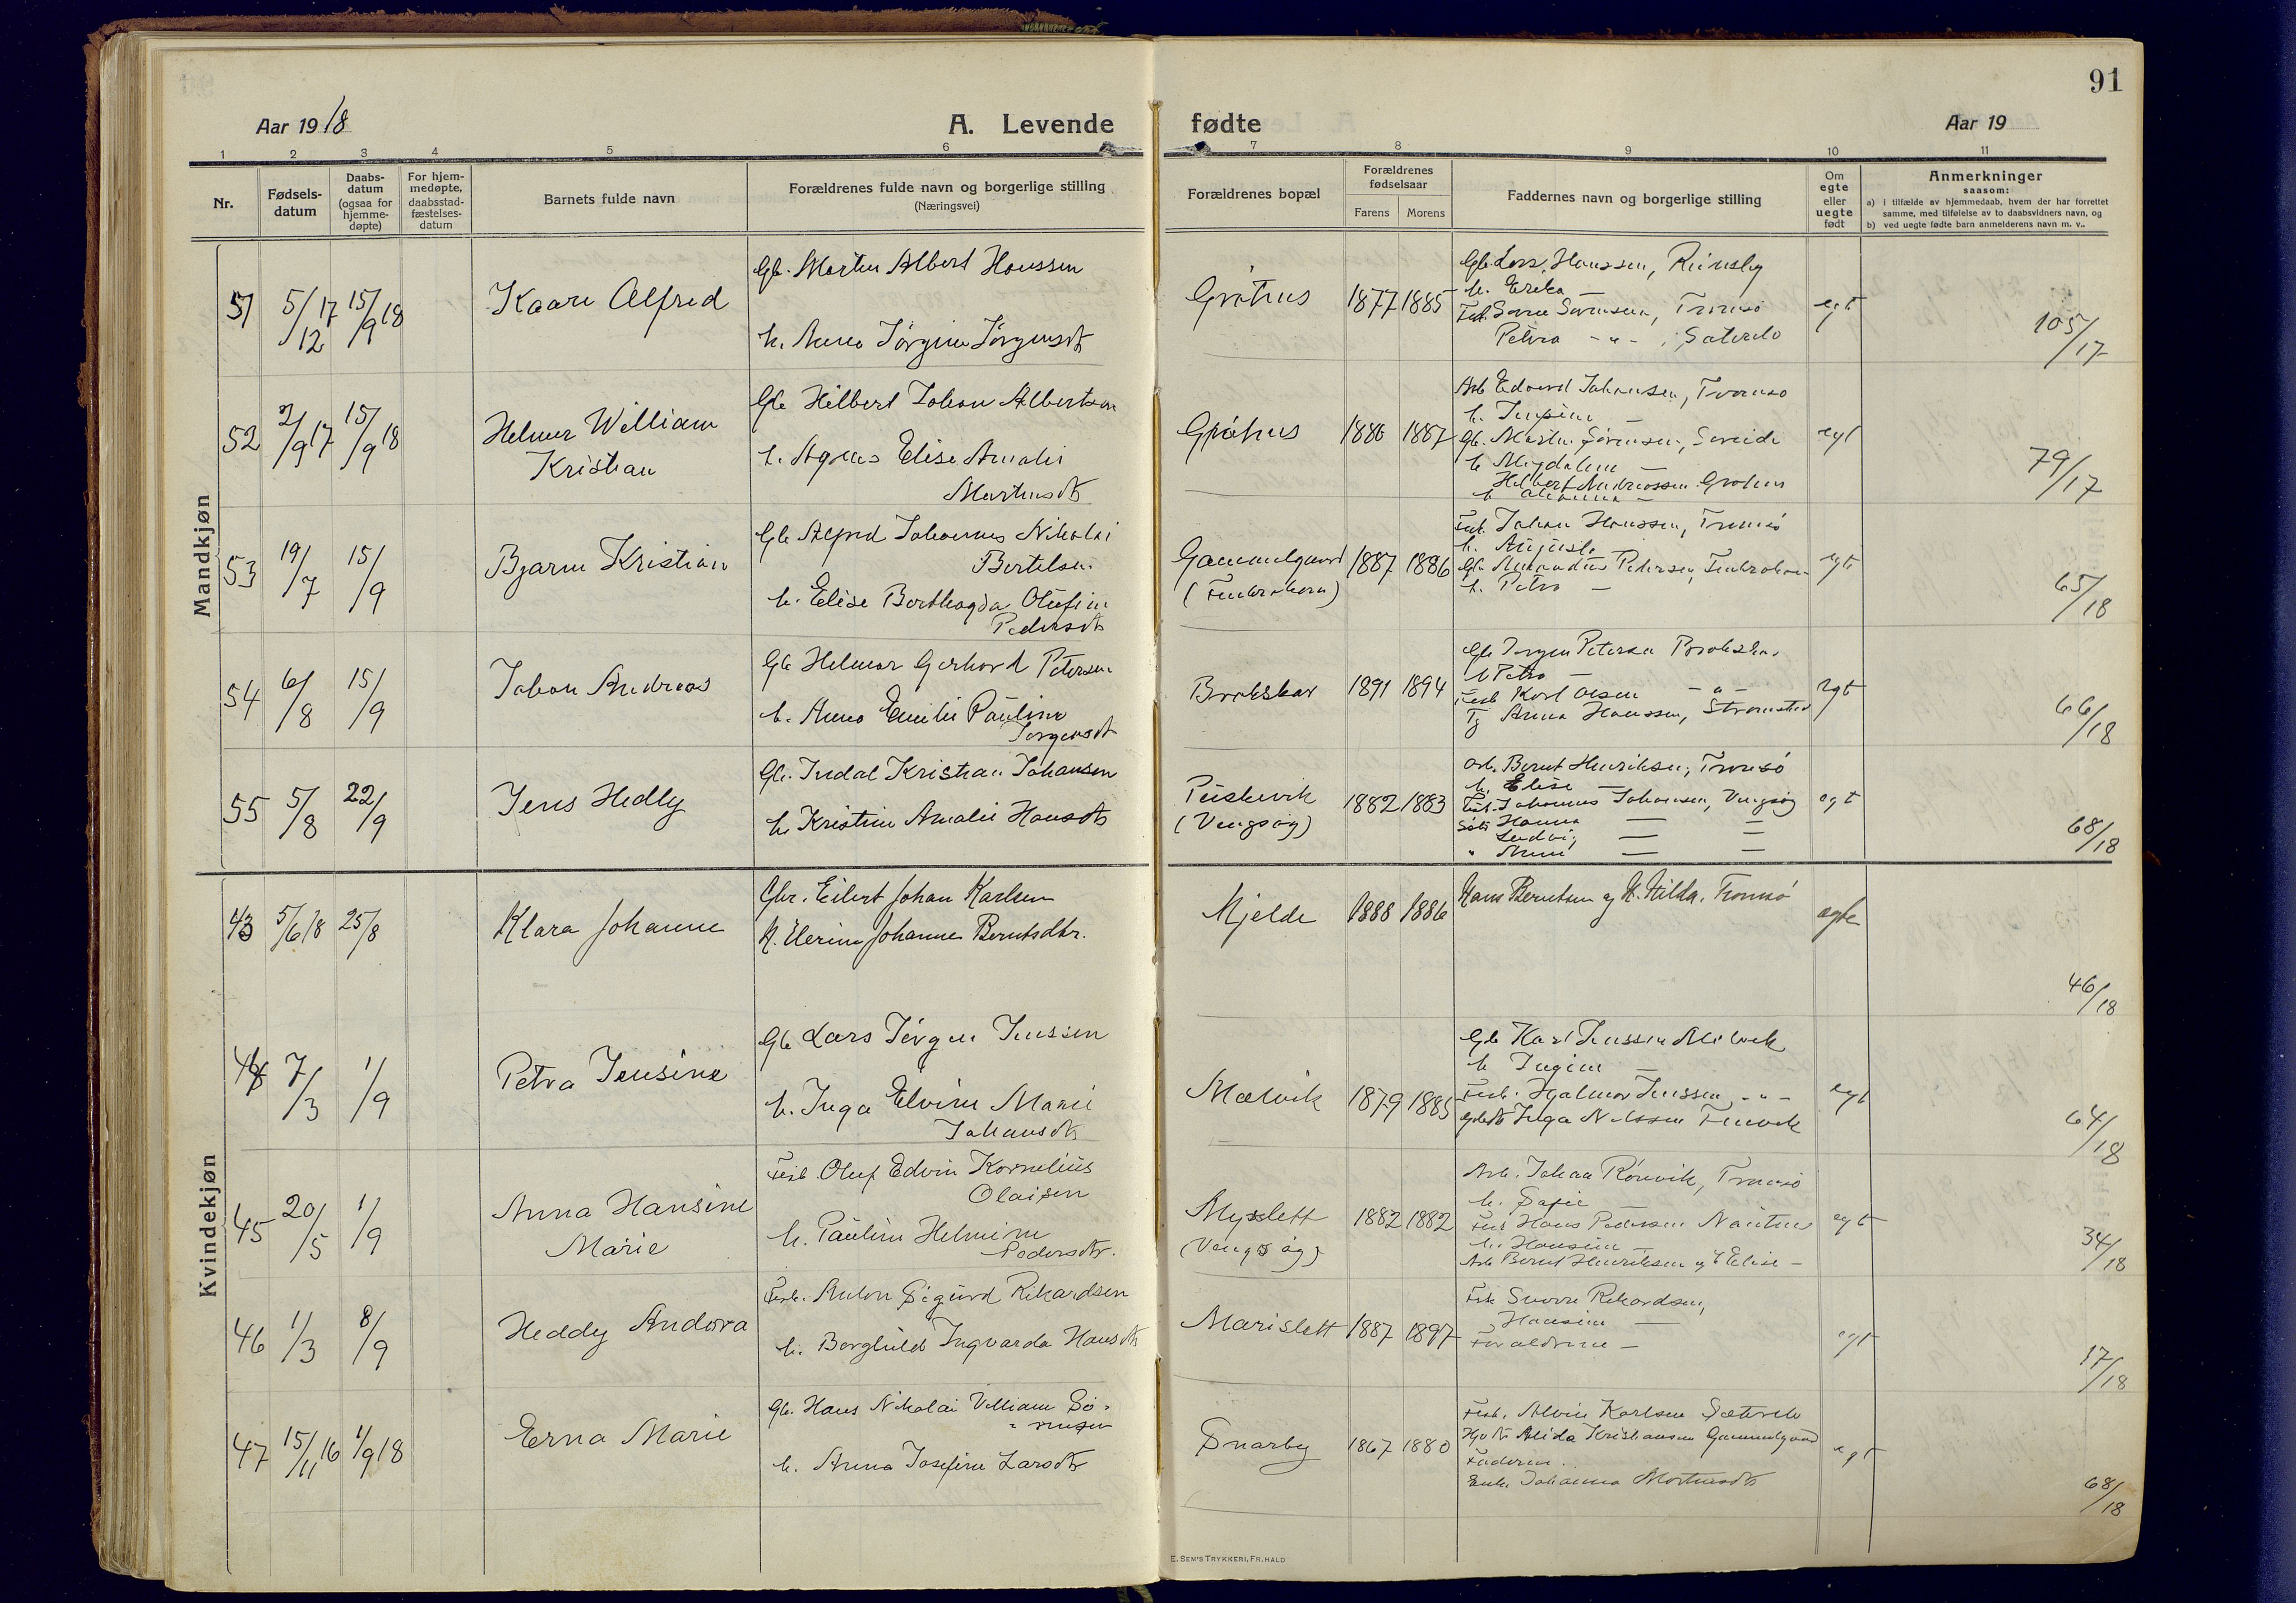 91
Aar 1918
A. Levende fødte
Aar 19
1 2 3 4 5 6 7 8 9 10 11
Nr.
Fødsels-
datum
Daabs-
datum
(ogsaa for
hjemme-
døpte)
For hjem-
medøpte,
daabsstad-
fæstelses-
datum
Barnets fulde navn
Forældrenes fulde navn og borgerlige stilling
(Næringsvei)
Forældrenes bopæl
Forældrenes
fødselsaar
Farens Morens
Faddernes navn og borgerlige stilling
Om
egte
eller
uegte
født
Anmerkninger
saasom:
a) i tilfælde av hjemmedaab, hvem der har forrettet
samme, med tilføielse av to daabsvidners navn, og
b) ved uegte fødte barn anmelderens navn m. v..
Mandkjøn
51 5/12 17 15/9 18
Kaare Alfred
Gb. Morten Albert Hanssen
h. Anna Jørgine Jørgensdt
Gråhus
1877 1885
Gb. Lars Hanssen,
h. Erika —
Sørensen, Tromsø
Petra - " -
egt
105/17
52 2/9 17 15/9 18
Helmer William
Kristian
Gb Hilbert Johan Albertsen
h. Agnes Elise Amalie
Martinsdt
Gråhus
1886 1887
Arb Edvard Johansen, Tromsø
h.
Gb. Martin Sørensen,
h
Hilbert Andreassen Gråhus
h Johanna —
egt
79/17
53 19/7 15/9
Bjarne Kristian
Gb Alfred Johannes Nikolai
Bertelsen
h. Elise Berthogda Olufine
Pedersdt
Gammelgaard
1887 1886
Fisk. Johan Hanssen, Tromsø
h. Augusta
Gb. Pedersen,
h. Petra —
egt
65/18
54 6/8 15/9
Johan Andreas
Gb Helmer Gerhard Petersen
h. Anna Emilie Pauline
Jørgensdt
Brokskar
1891 1894
Gb Jørgen Petersen
h Petra —
Fisk Karl Olsen - " -
Anna Hanssen,
egt
66/18
55 5/8 22/9
Jens Hedly
Gb. Indal Kristian Johansen
h. Kristine Amalie Hansdt
(Vengsøy)
1882 1883
Arb. Bernt Henriksen, Tromsø
h. Elise —
Fisk. Johannes Johansen, Vengsøy
Hanna — —
egt
68/18
Kvindekjøn
43 5/6 18 25/8
Klara Johanne
Gbr. Eilert Johan Karlsen
H. Elerine Johanne Berntsdtr.
Mjelde
1888 1886
Hans Berntsen og H. Hilda, Tromsø
egte
46/18
44 7/3 1/9
Petra Jensine
Gb Lars Jørgen Jenssen
h. Inga Elvine Marie
Johansdt
Mælvik
1879 1885
Gb Karl Jenssen
h
Fisk. Hjalmar Jenssen - " -
Inga Nilssen
egt
64/18
45 20/5 1/9
Anna Hansine
Marie
Fisk. Oluf Edvin Kornelius
Olaisen
h. Pauline Helmine
Pedersdt.
Myslett
(Vengsøy)
1882 1882
Arb. Johan Rønvik, Tromsø
h.
Fisk Hans Pedersen
h. Hansine —
Arb Bernt Henriksen og h Elise —
egt
34/18
46 1/3 8/9
Heddy Andora
Fisk. Anton Sigurd Rikardsen
h. Borghild Ingvarda Hansdt
Marislett
1887 1897
Fisk Sverre Rikardsen,
Hansine —
Forældrene —
egt
17/18
47 15/11 16 1/9 18
Erna Marie
Gb. Hans Nikolai Villiam Sø-
rensen
h. Anna Josefine Larsdt
Snarby
1867 1880
Fisk. Alvin Karlsen
Alida Kristiansen Gammelgaard
Faderen.
Enke Johanna Mortensdt
egt
68/18
E. SEM'S TRYKKERI, FR.HALD